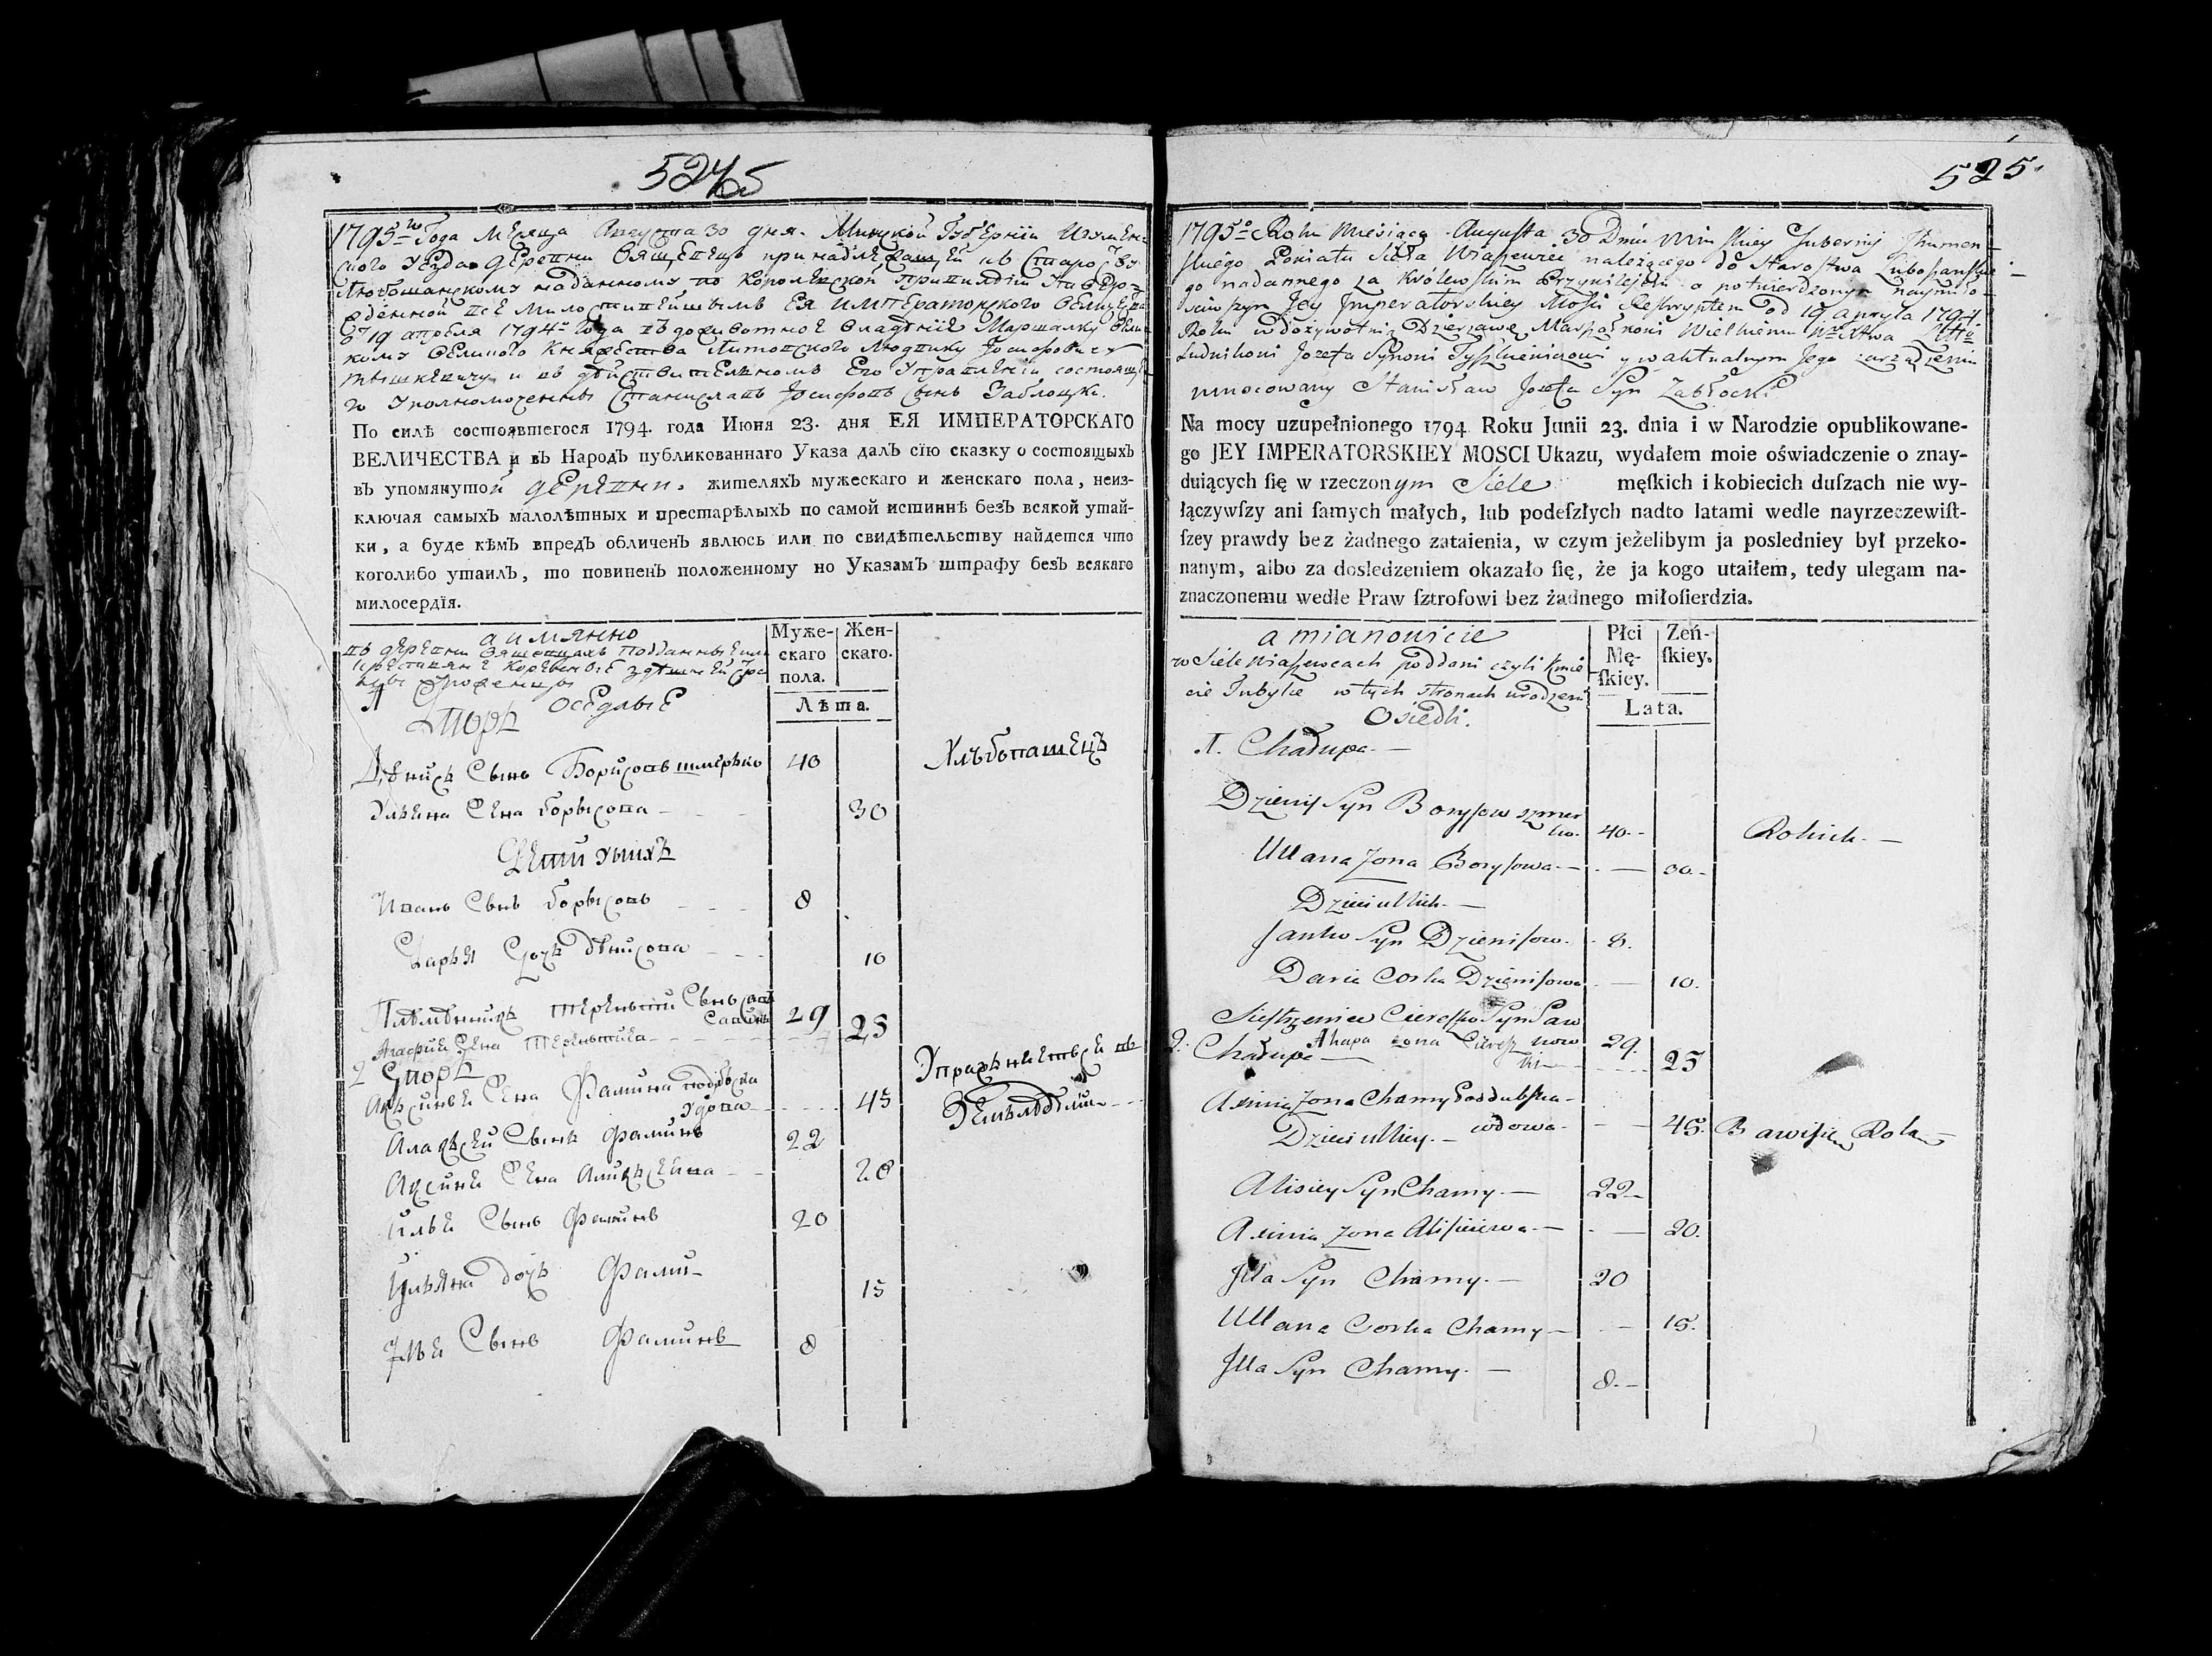 5245
1795 го Года Месяца Августа 30 дня. Минской Губернии Игумен-
ского уезда деревни принадлежащей къ Старо
Любошанскому наданному по Королевской Привилегии
Милостивейшымъ Ея ИМПЕРАТОРСКОГО
19 апреля 1794 года владение Маршалку
Великого Княжества Литовского Людвику Іосифович
Тышкевичу и въ действительномъ Его Управлении состоящ
Уполномоченны Станиславъ Іосифовъ сынъ Заблоцки.
По силѣ состоявшегося 1794. года Июня 23. дня ЕЯ ИМПЕРАТОРСКАГО
ВЕЛИЧЕСТВА и въ Народъ публикованнаго Указа далъ сїю сказку о состоящыхъ
въ упомянутой деревни. жителяхъ мужескаго и женскаго пола, неиз-
ключая самыхъ малолѣтных и престарѣлыхъ по самой истиннѣ безъ всякой утай-
ки, а буде кѣмъ впредъ обличенъ явлюсь или по свидѣтельству найдется что
коголибо утаилъ, то повиненъ положенному по Указамъ штрафу безъ всякаго
милосердїя.
а имянно
Муже-скаго пола.
Жен-скаго.
Лѣта.
въ деревни подданные
Оседлые
1 Дворъ
Денисъ Сынъ Борисовъ 40 Хлѣбопашецъ
Ульяна Жена борысова 30
Дети Ихъ
Иванъ Сынъ борысовъ 8
Дарья Дочь денисова 10
Племенникъ Терентий Сынъ Савинъ 29
Агафия Жена 25
2 Дворъ
Жена Фамина Вдова 45
Упражняетьси въ Земледелии
Алексей Сынъ Фаминъ 22
Аксиня Жена 20
Илья Сынъ Фаминъ 20
Ульяна дочь Фами 15
Илья Сынъ Фаминъ 8
525.
1795o Roku Miesiąca Augusta 30 Dnia Minskiey Guberny Ihumen
skiego Powiatu Sieła Wiaszewicz należącego do Starostwa Luboszanskie-
go nadannego za Królewskim Przywilejem a potwierdzonym naymiło
sciwszym Jey Imperatorskiey Mosci Reskryptem od 19 apryla 1794
Roku w dożywotnią Dzierzawę Marszałkowi Wielkiemu W. X-twa Litto
Ludwikowi Jozefa Synowi Tyszkiewiczowi y w aktualnym Jego zarządzeniu
umocowany Stanisław Jozefa Syn Zabłocki
Na mocy uzupełnionego 1794 Roku Junii 23. dnia i w Narodzie opublikowane-
go JEY IMPERATORSKIEY MOSCI Ukazu, wydałem moie oświadczenie o znay-
duiących ſię w rzeczonym Siele męſkich i kobiecich duſzach nie wy-
łączywſzy ani ſamych małych, lub podeſzłych nadto latami wedle nayrzeczewiſt-
ſzey prawdy bez żadnego zataienia, w czym jeżelibym ja posledniey był przeko-
nanym, albo za dosledzeniem okazało ſię, że ja kogo utaiłem, tedy ulegam na-
znaczonemu wedle Praw ſztrofowi bez żadnego miłoſierdzia.
a mianowicie
Płci Mę-ſkiey.
Zeń-ſkiey.
Lata.
w Siele Wiaszewcach poddani czyli Kmie
cie w tych stronach urodzeni
Osiedli.
1. Chałupa.
Dzienis Syn Borysow szmer
ko. 40. Rolnik.
Ullana Zona Borysowa 30.
Dzieci Ich
Janko Syn Dzienisow. 8.
Daria Corka Dzienisowa 10.
Siestrzeniec Ciereszko Syn Saw
now 29.
Ahapa żona Cieresz
ki 25
2. Chałupa
Axinia Zona Chamy Poddubska
wdowa. 45. Bawisię Rolą
Dzieci Ikiey.
Alisiey Syn Chamy. 22
Axinia Zona Alisieiewa. 20.
Illa Syn Chamy. 20
Ullana Corka Chamy 15.
Illa Syn Chamy. 8.